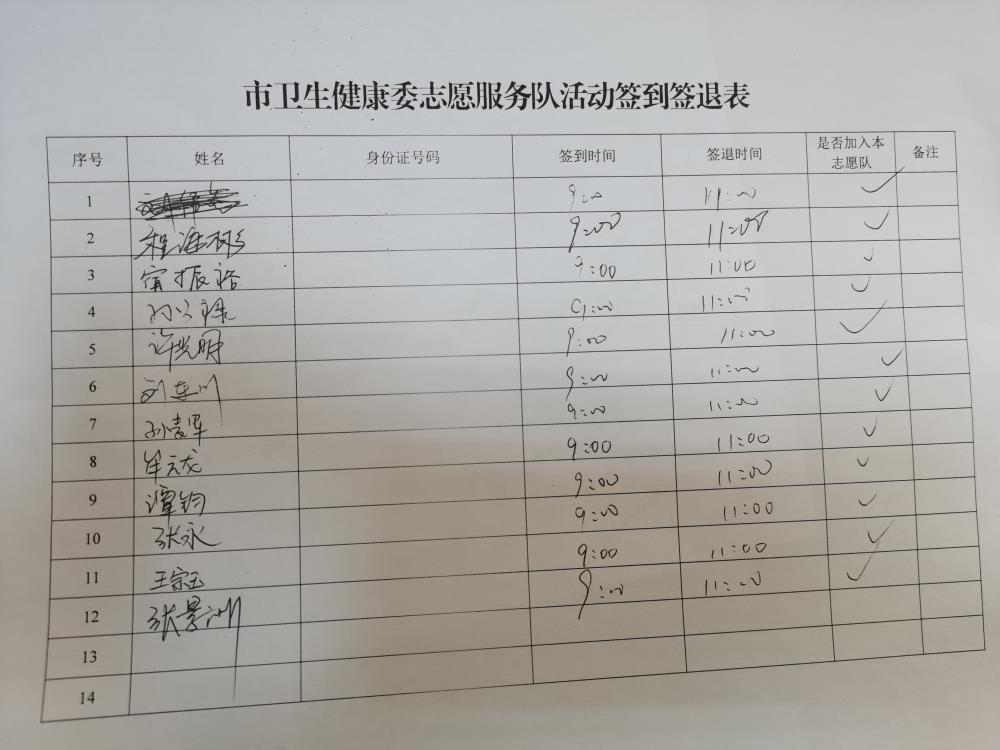 市卫生健康委志愿服务队活动签到签退表
序号 姓名 身份证号码 签到时间 签退时间 是否加入本志愿队 备注
1 9:00 11:00 ✓
2 程海彬 9:00 11:00 ✓
3 宿振裕 9:00 11:00 ✓
4 孙 9:00 11:00 ✓
5 许光明 9:00 11:00 ✓
6 刘东川 9:00 11:00 ✓
7 孙 军 9:00 11:00 ✓
8 牟云龙 9:00 11:00 ✓
9 谭钧 9:00 11:00 ✓
10 张永 9:00 11:00 ✓
11 王宗玉 9:00 11:00 ✓
12 张景 9:00 11:00 ✓
13
14